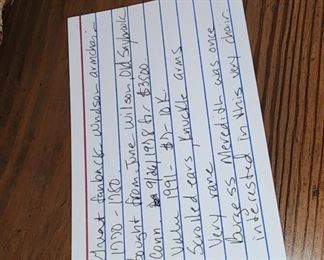 Great fanback Windsor armchair -
1770 - 1780.
bought from June Wilson, Old Saybrook
Conn 9/26/1978 for $3500
Value 1991 - $7-10K.
Scrolled ears, Knuckle arms
Very rare
Burgess Meredith was once
interested in this very chair.